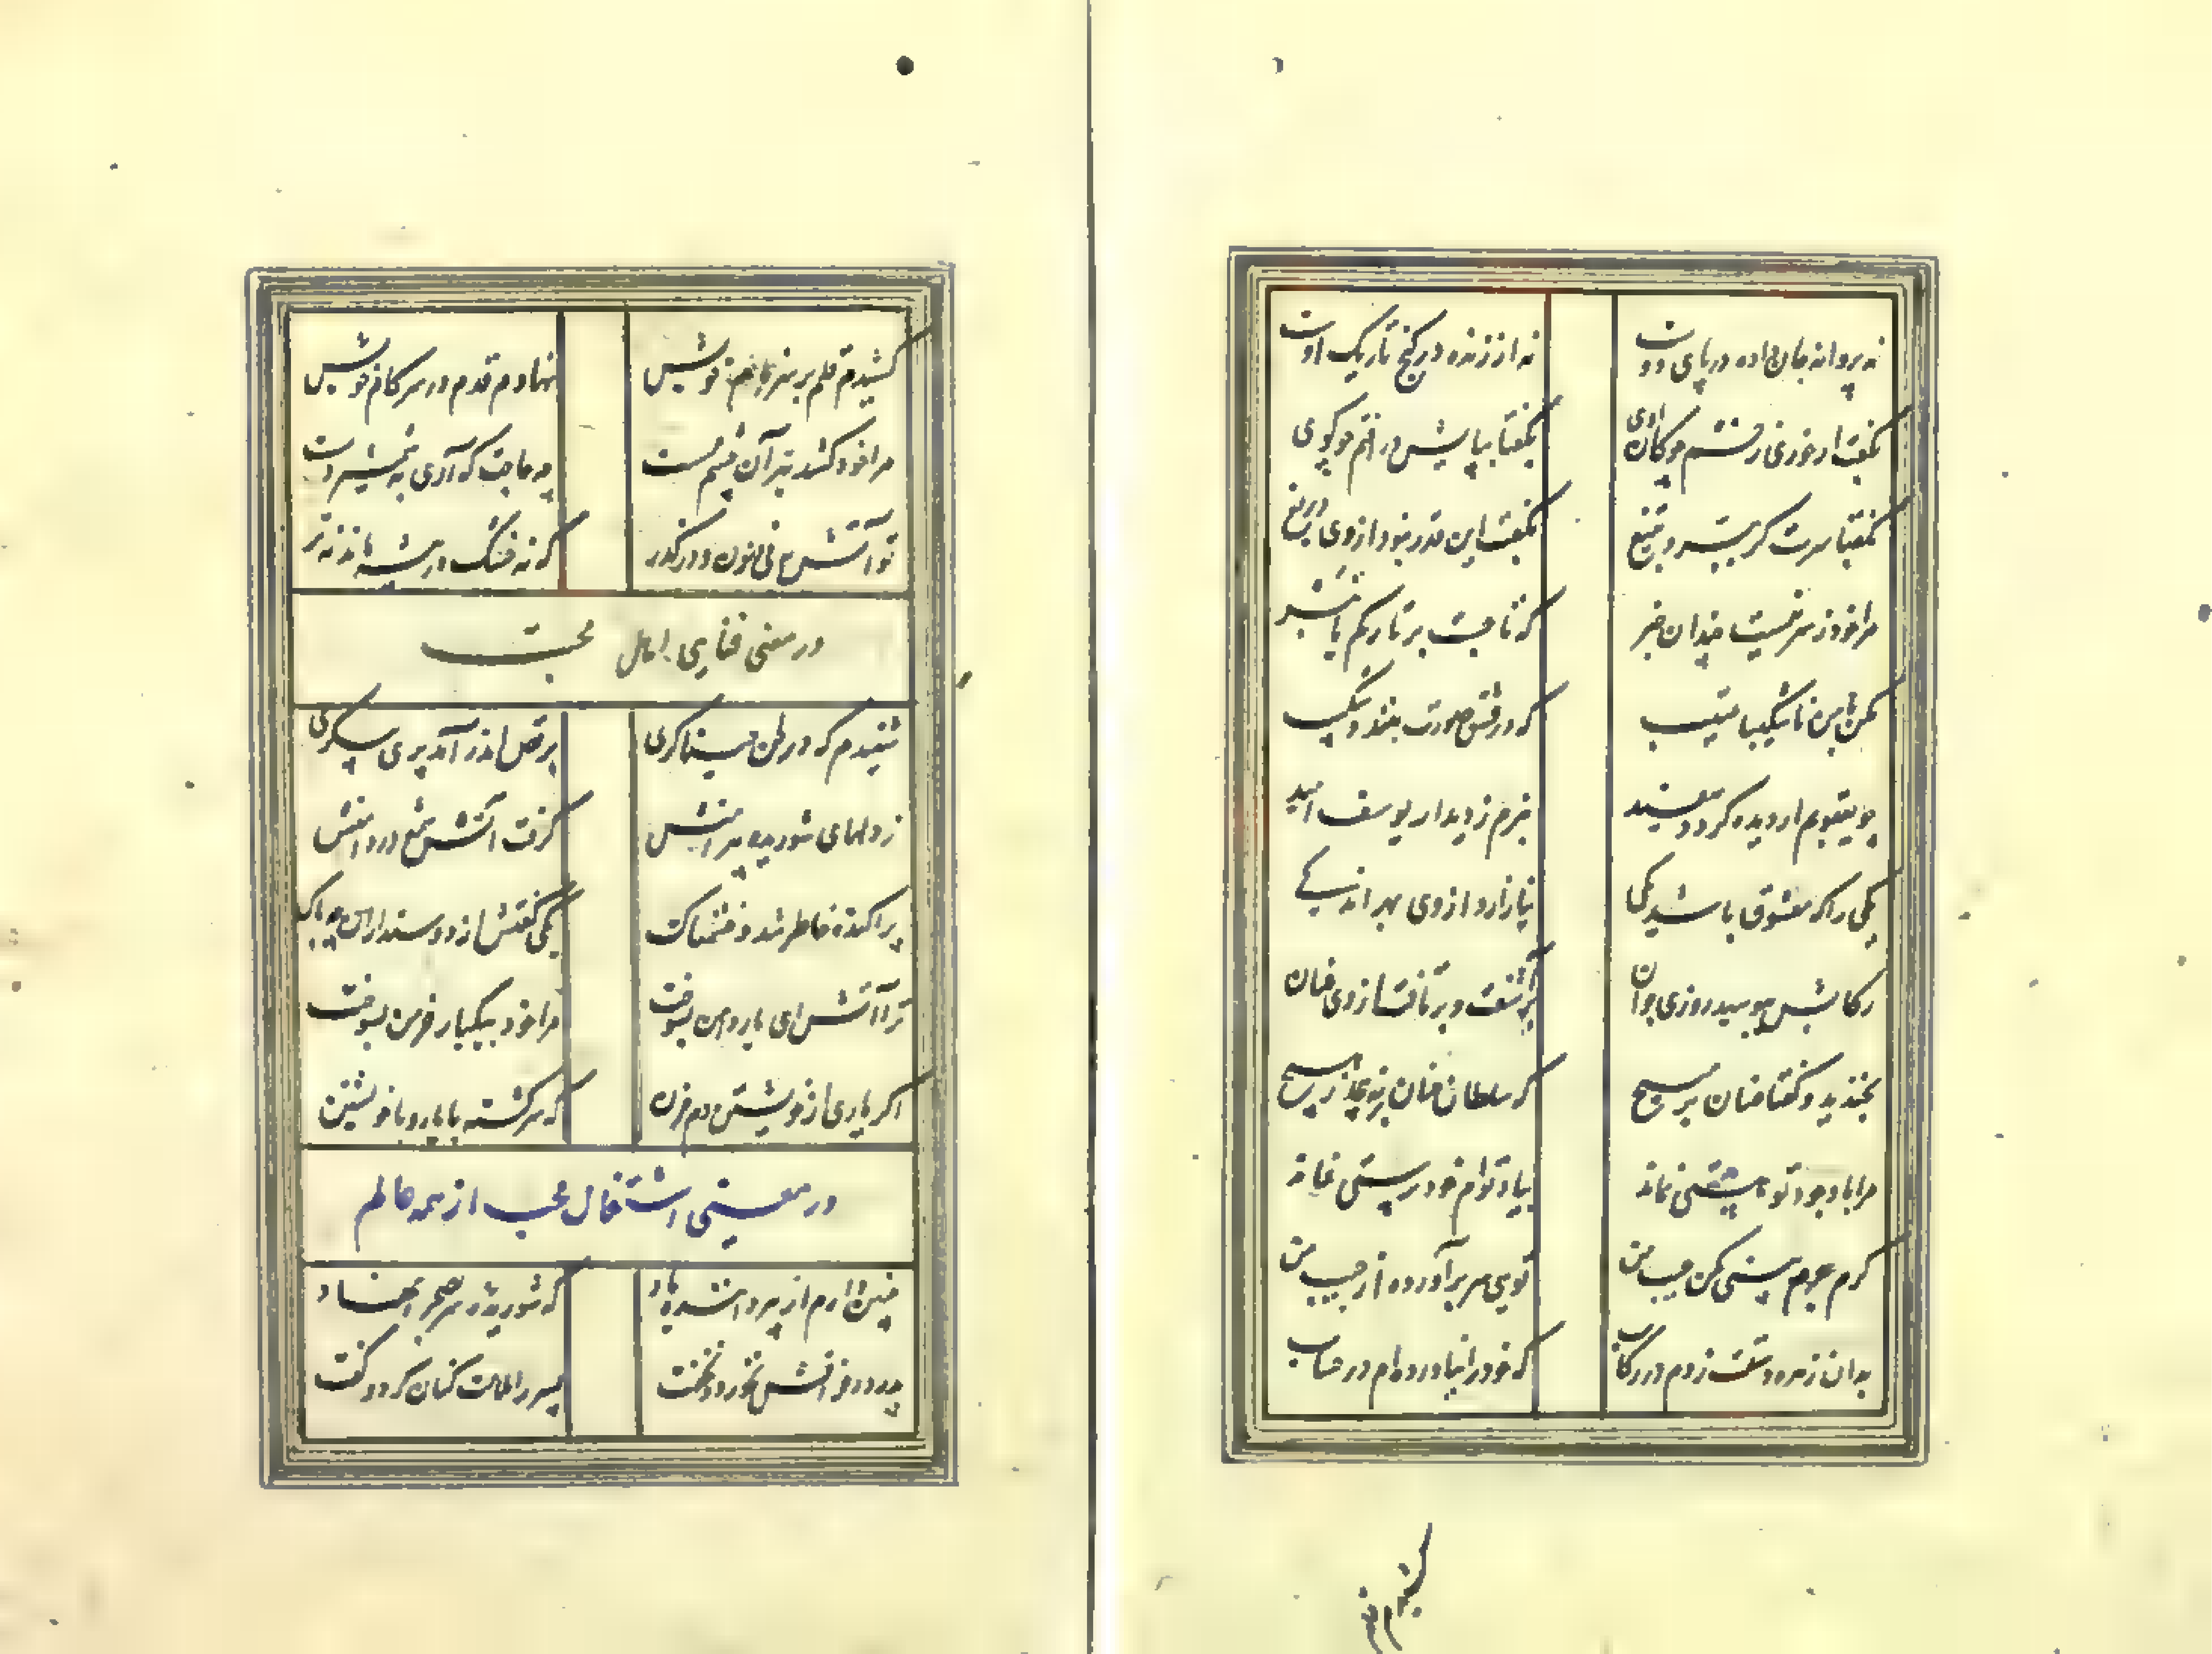 نه پروانه جان داده در پای دوست نه از زنده در کنج تاریک اوست
بگفت ار خوری زخم چوگان اوی بگفتا بپایش در افتم چو گوی
بگفتا سرت گر ببرد به تیغ بگفت این قدر نبود از وی دریغ
مرا خود ز سر نیست چندان خبر که تاجست بر تارکم یا تبر
مکن با من ناشکیبا عتیب که در عشق صورت نبندد شکیب
چو یعقوبم ار دیده گردد سفید نبرم ز دیدار یوسف امید
یکی را که معشوق باشد یکی نیازارد از وی بهر اندکی
رکابش ببوسید روزی جوان برآشفت و برتافت از وی عنان
بخندید و گفتا عنان بر مپیچ که سلطان عنان برنپیچد ز هیچ
مرا با وجود تو هستی نماند بیاد توام خودپرستی نماند
گرم جرم بینی مکن عیب من تویی سر برآورده از جیب من
بدان زهره دستت زدم در رکاب که خود را نیاوردم اندر حساب
کشیدم قلم
کشیدم قلم بر سر نام خویش نهادم قدم در سر کام خویش
مرا خود کشد تیر آن چشم مست چه حاجت که آری به شمشیر دست
تو آتش به نی در زن و در گذر که نه خشک در بیشه ماند نه تر
در معنی فنای اهل محبت
شنیدم که در لحن خنیاگری برقص اندر آمد پری پیکری
ز دلهای شوریده پیرامنش گرفت آتش شمع در دامنش
پراکنده خاطر شد و خشمناک یکی گفتش از دوستداران چه باک
ترا آتش ای یار دامن بسوخت مرا خود بیکبار خرمن بسوخت
اگر یاری از خویشتن دم مزن که شرکست با یار و با خویشتن
در معنی اشتغال محب از همه عالم
چنین دارم از پیر داننده یاد که شوریده سر به صحرا نهاد
پدر در فراقش نخورد و نخفت پسر را ملامت کنان کرد و گفت